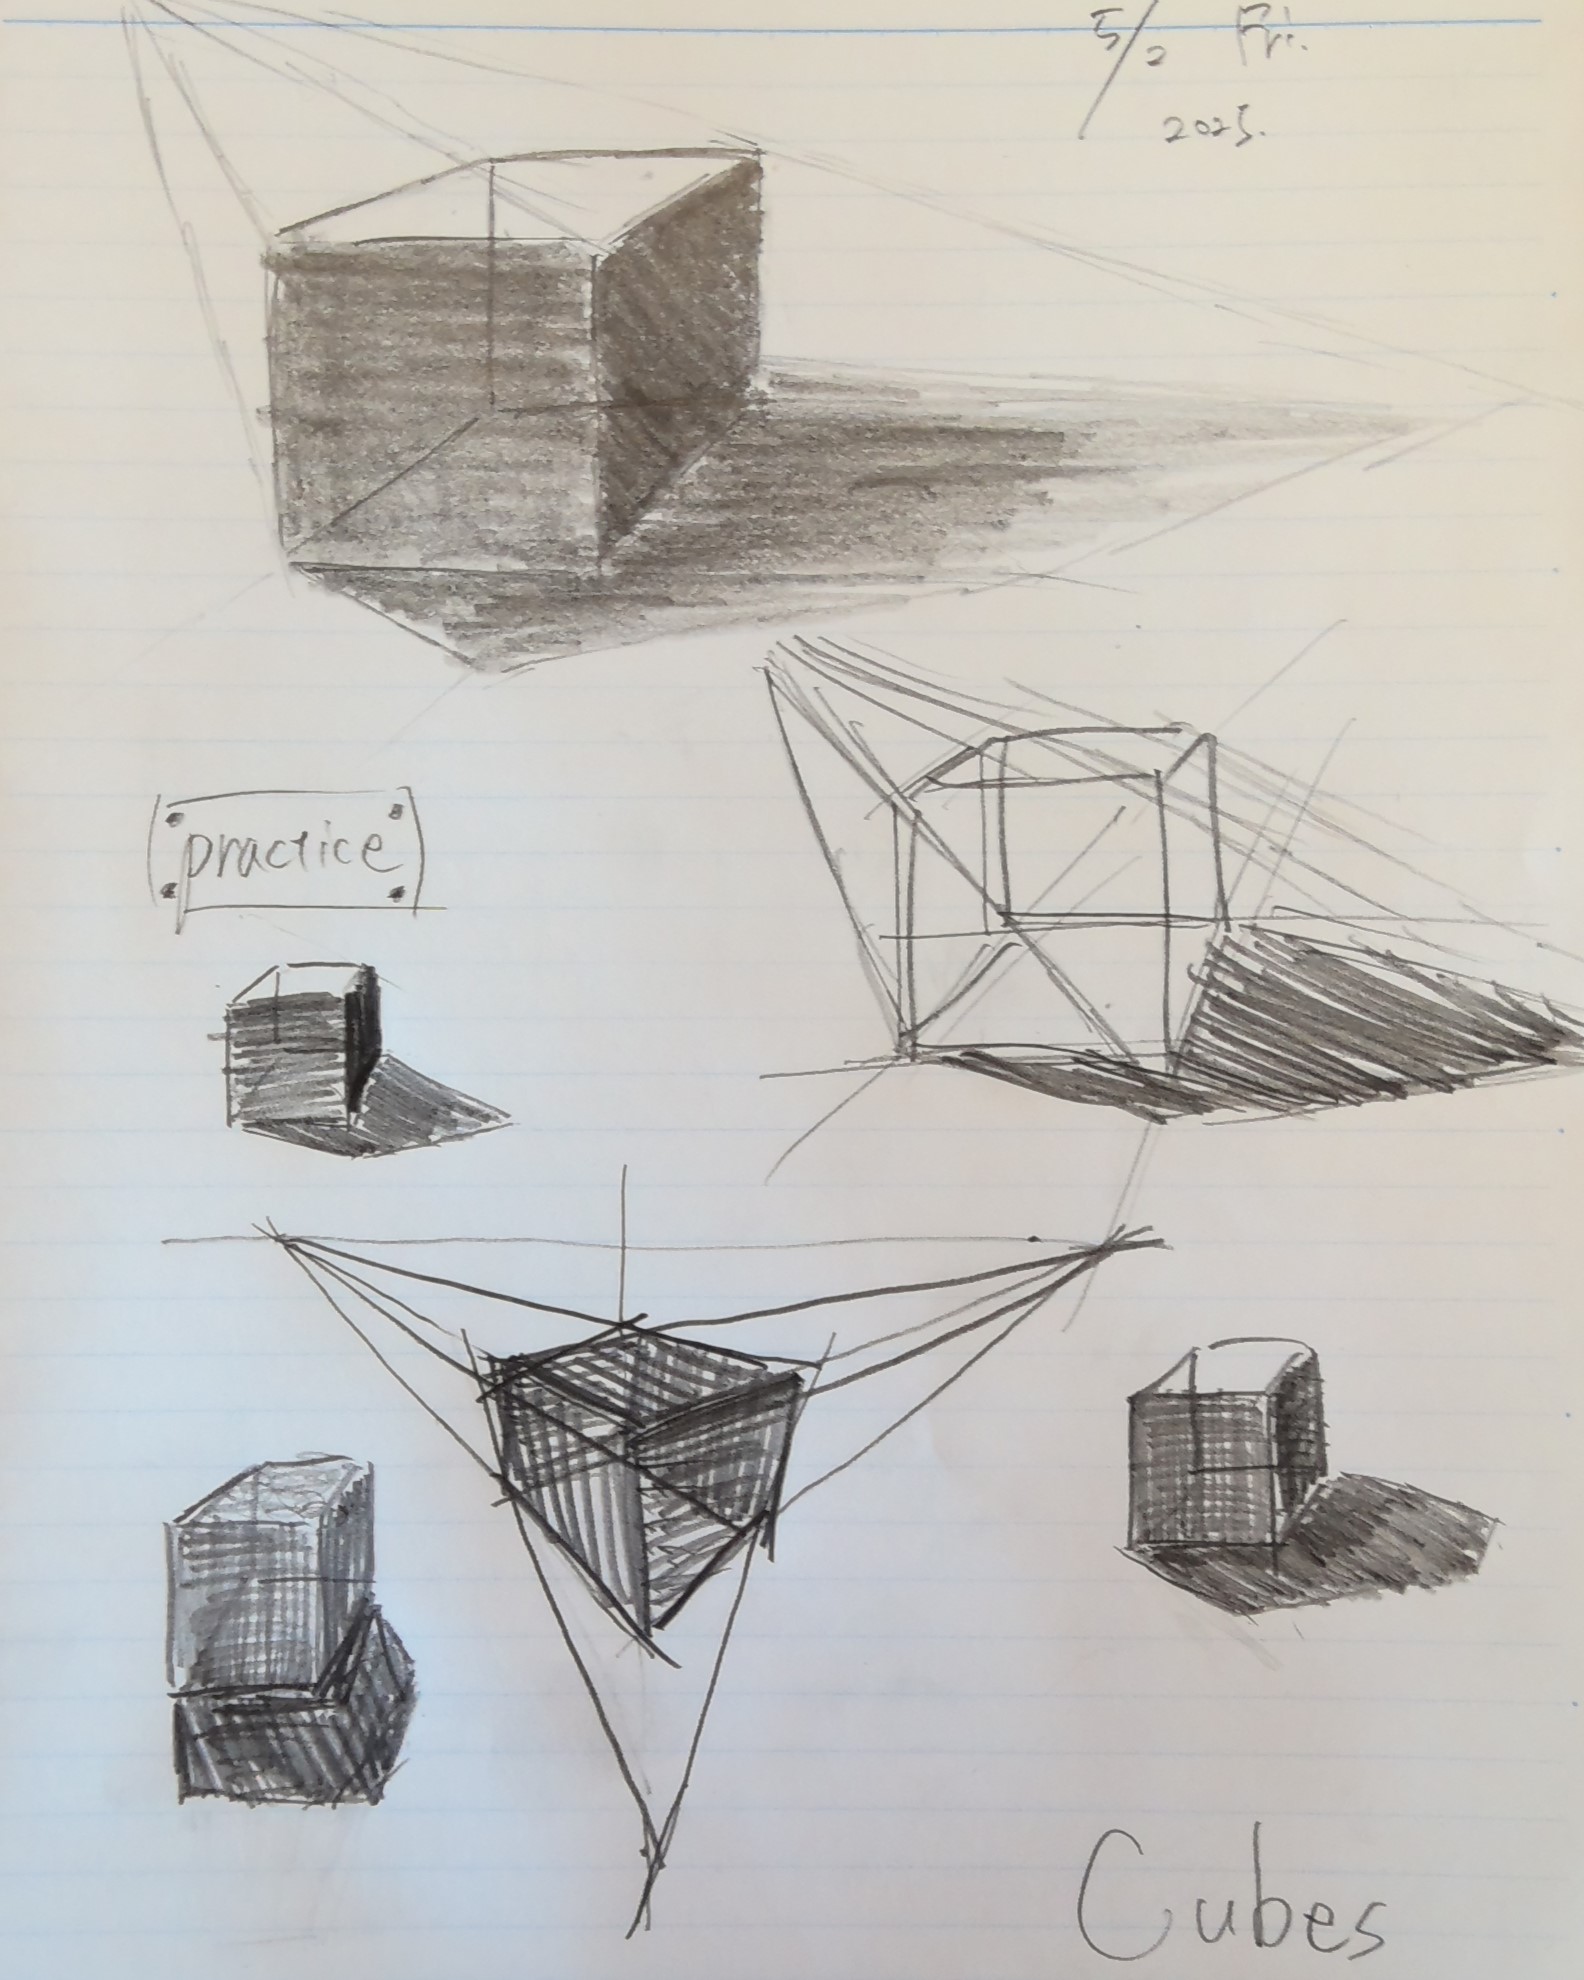 5/2 Fri.
2025.
practice
Cubes